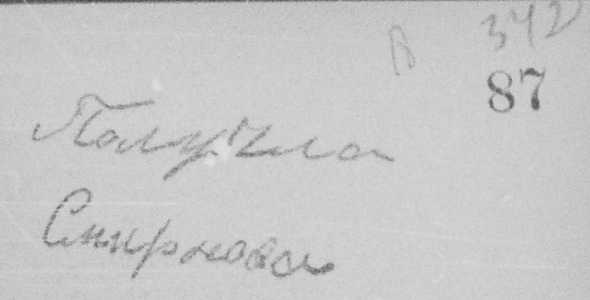 342
87
Получила
Смирнова